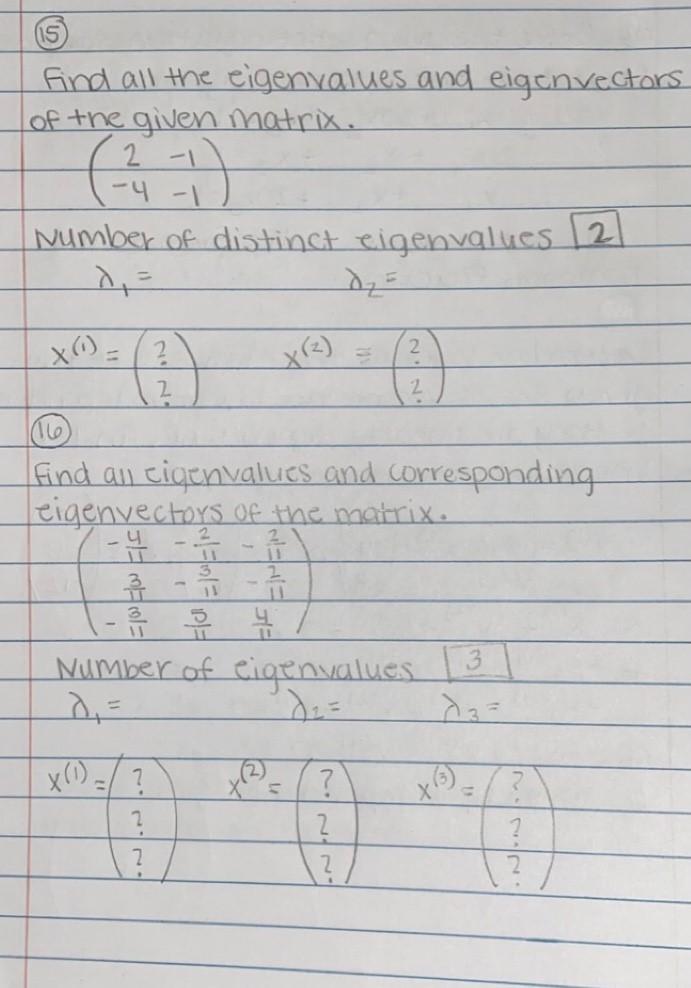 15
Find all the eigenvalues and eigenvectors
of the given matrix.
2 -1
-4 -1
Number of distinct eigenvalues 2
λ₁ = λ₂ =
x⁽¹⁾ = ( ? ? ) x⁽²⁾ = ( ? ? )
16
Find all eigenvalues and corresponding
eigenvectors of the matrix.
-4/11 -2/11 -2/11
3/11 -3/11 -2/11
-3/11 5/11 4/11
Number of eigenvalues 3
λ₁ = λ₂ = λ₃ =
x⁽¹⁾ = ( ? ? ? ) x⁽²⁾ = ( ? ? ? ) x⁽³⁾ = ( ? ? ? )